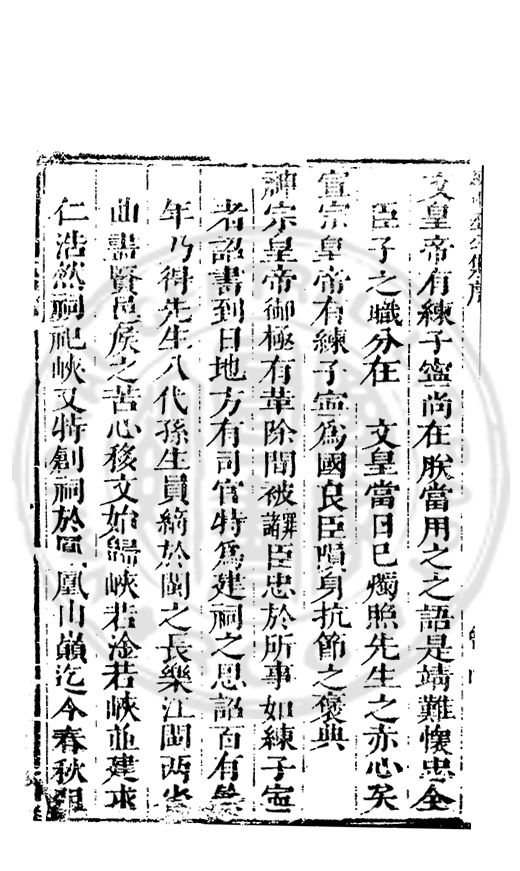 文皇帝有練子寧尚在朕當用之之語是靖難懷忠全
臣子之職分在　文皇當日已燭照先生之赤心矣
宣宗皇帝有練子寧為國良臣隕身抗節之褒典
神宗皇帝御極有革除間被罪諸臣忠於所事如練子寧
者詔書到日地方有司官特為建祠之恩詔百有餘
年乃得先生八代孫生員綺於閩之長樂江閩兩省
由盡賢邑侯之苦心移文始歸峽若淦若峽並建求
仁浩然祠祀峽又特創祠於鳳凰山巔迄今春秋俎